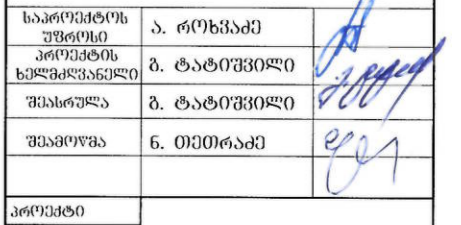 საპროექტოს
უფროსი
ა. როხვაძე
პროექტის
ხელმძღვანელი
გ. ტატიშვილი
შეასრულა
გ. ტატიშვილი
შეამოწმა
ნ. თეთრაძე
პროექტი